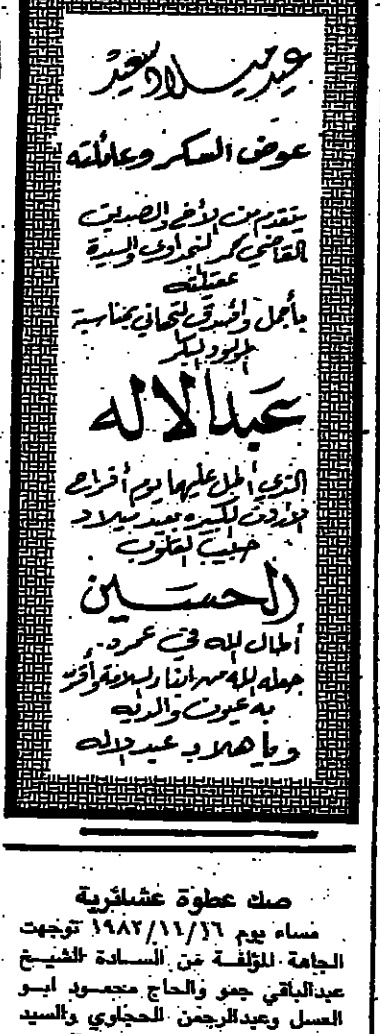 عيد ميلاد سعيد
عوض السكر وعائلته
يتقدم من الأخ والصديق
القاضي والسيدة
عقيلته
بأجمل وأصدق التهاني بمناسبة
المولود البكر
عبدالاله
الذي أطل عليهما يوم أفراح
الأردن الكبيرة بعيد ميلاد
حبيب القلوب
الحسين
أطال الله في عمره.
جعله الله من أبناء السلامة وأقر
به عيون والديه
ويا هلا بـ عبدالاله
صك عطوة عشائرية
مساء يوم ١٩٨٢/١١/١٦ توجهت
الجاهة المؤلفة من السادة الشيخ
عبدالباقي جمو والحاج محمود ابو
العسل وعبدالرحمن الحجاوي والسيد